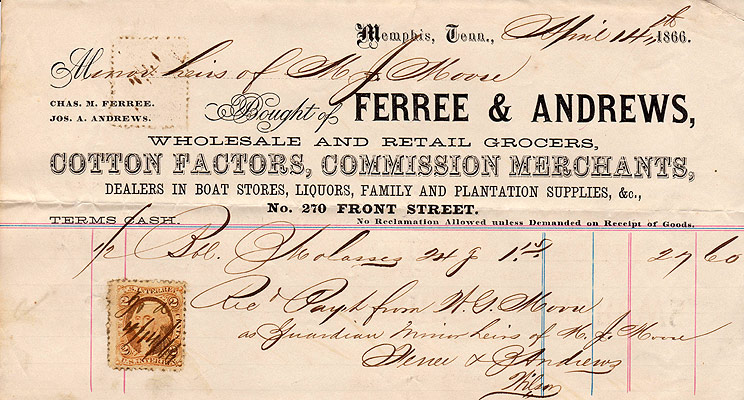 Memphis, Tenn., April 14th, 1866.
Minor heirs of M. J. Moore
CHAS. M. FERREE.
JOS. A. ANDREWS.
Bought of FERREE & ANDREWS,
WHOLESALE AND RETAIL GROCERS,
COTTON FACTORS, COMMISSION MERCHANTS,
DEALERS IN BOAT STORES, LIQUORS, FAMILY AND PLANTATION SUPPLIES, &c.,
No. 270 FRONT STREET.
TERMS CASH.
No Reclamation Allowed unless Demanded on Receipt of Goods.
1/2 Bbl. Molasses 24 g 1.15 27 60
Rec'd Paymt from W. G. Moore
as Guardian Minor heirs of M. J. Moore
Ferree & Andrews
Wilson
U.S. INTER. REV.
2 2
2 2